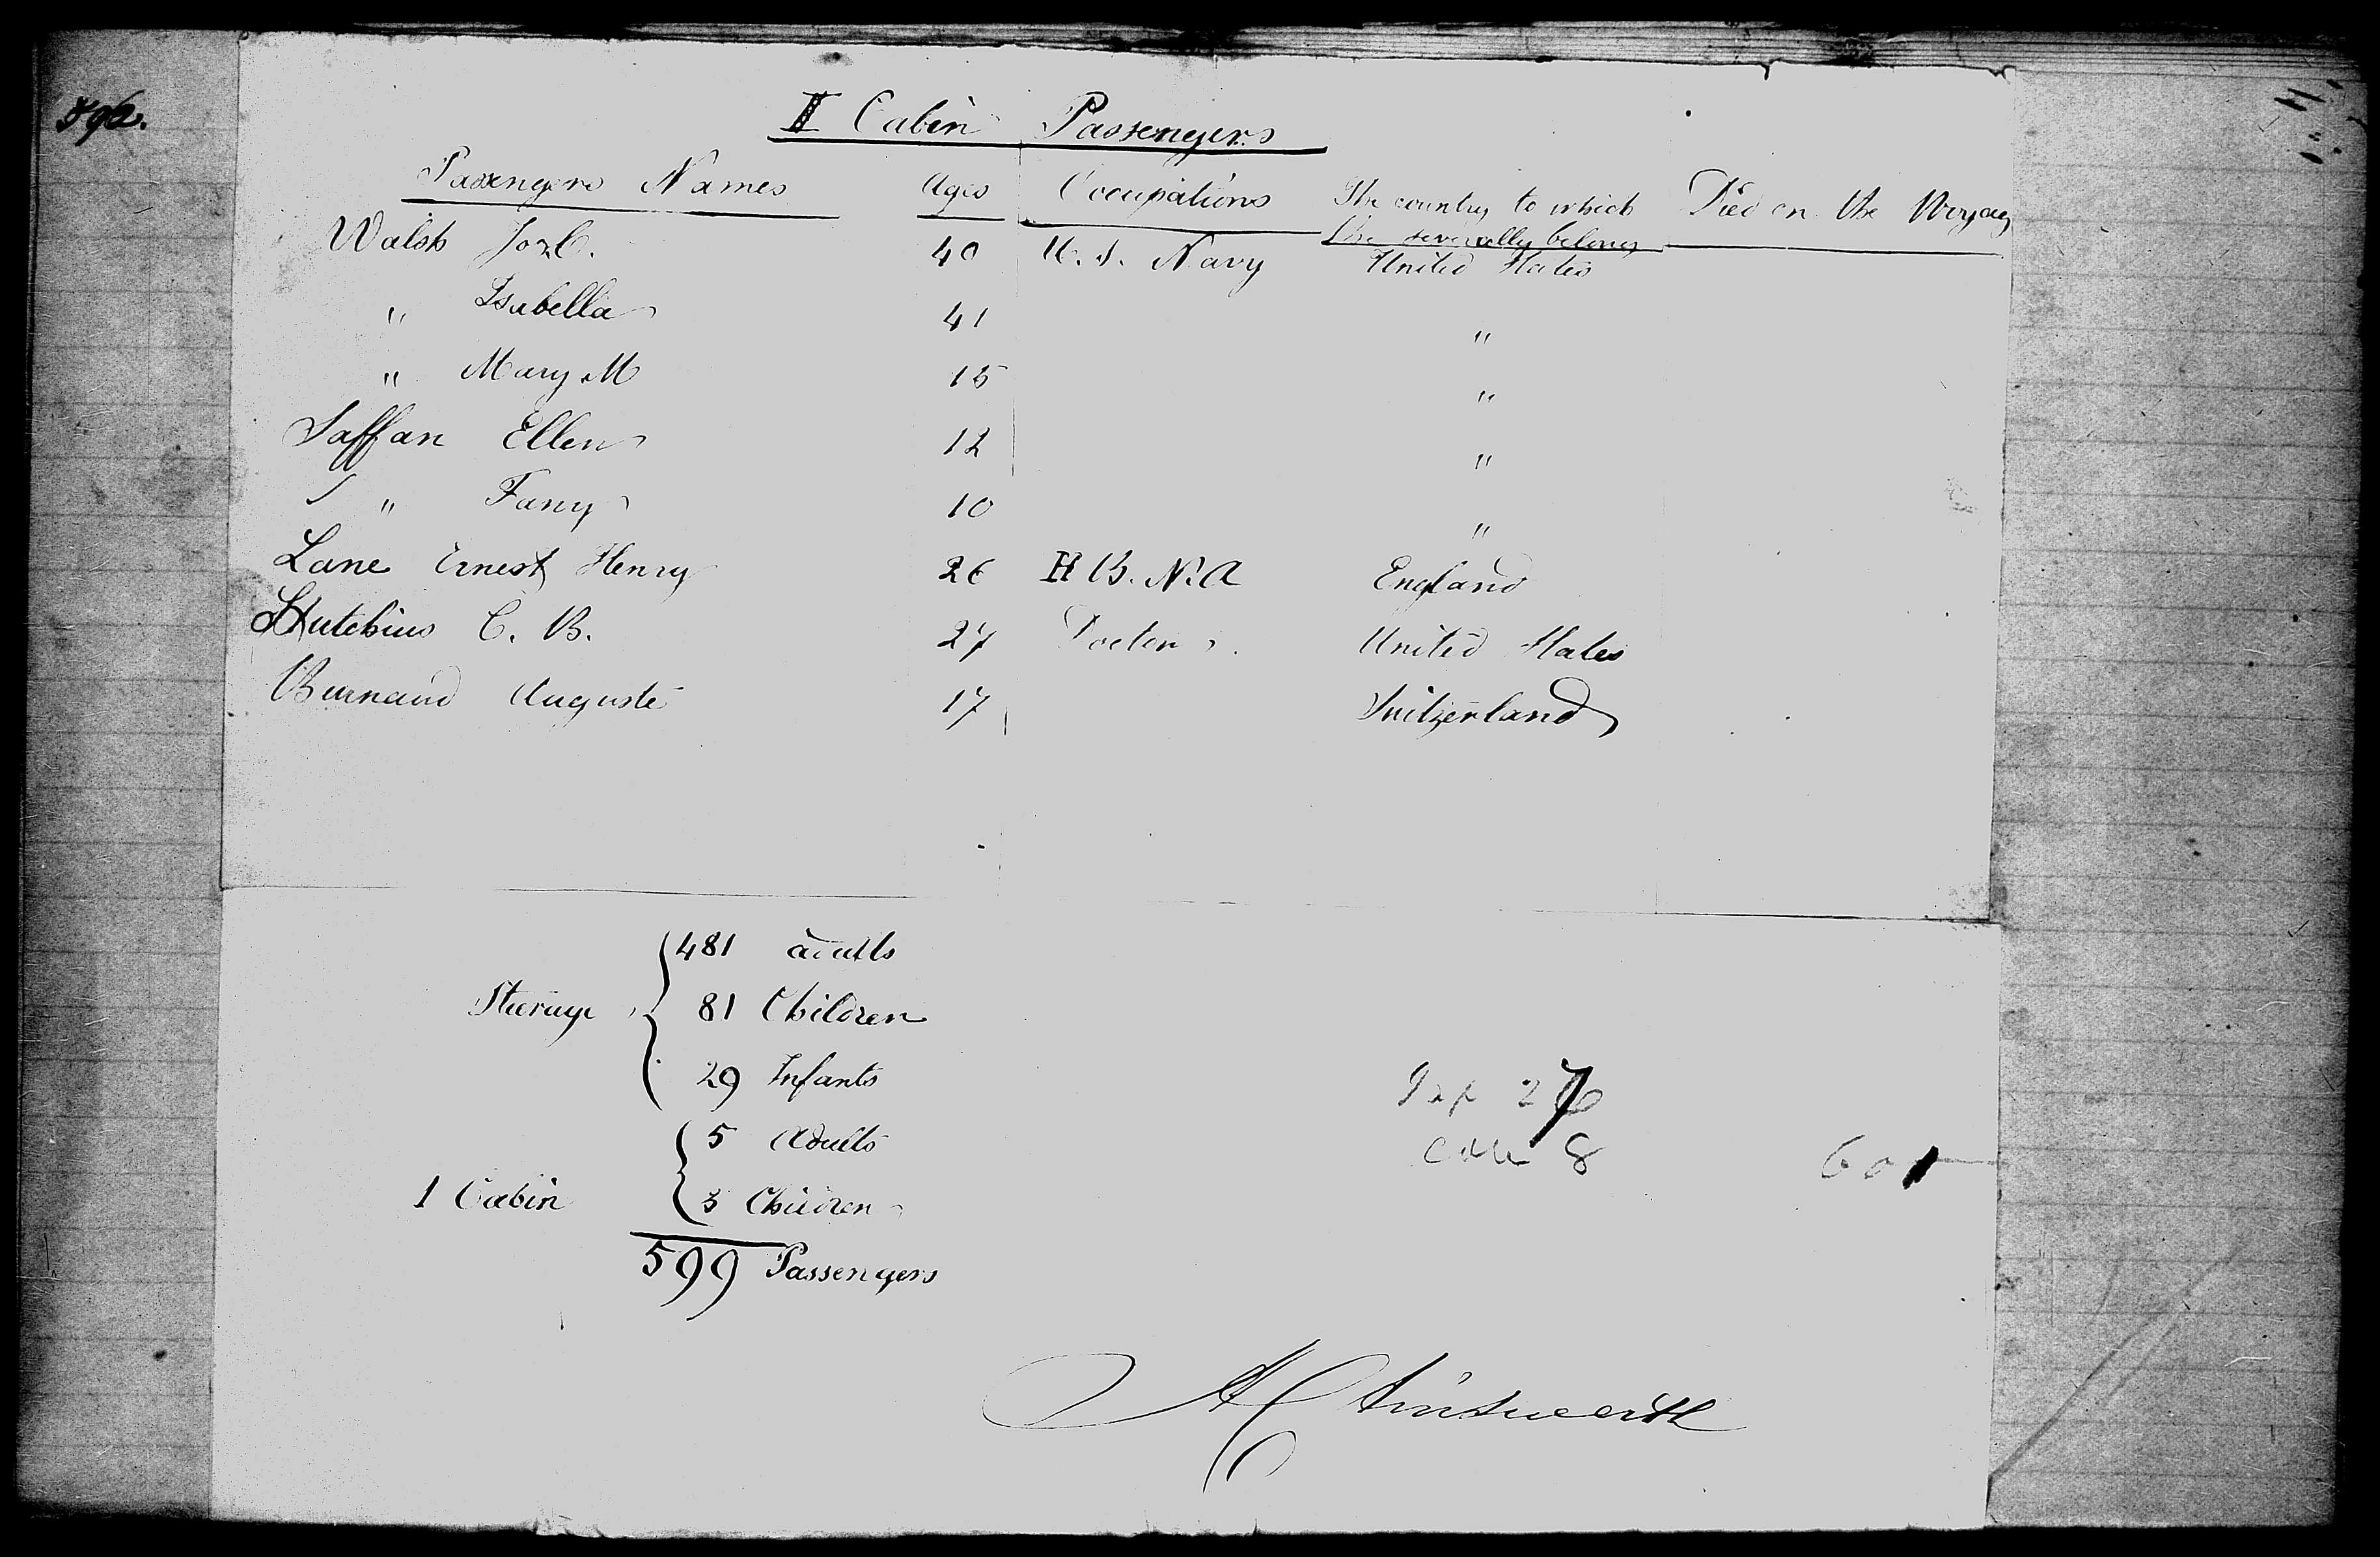 596.
II Cabin Passengers
Passengers Names Ages Occupations The country to which Died on the Voyage
the severally belong
Walsh Jos. C. 40 U. S. Navy United States
" Isabella 41 "
" Mary M 15 "
Saffan Ellen 12 "
" Fany 10 "
Lane Ernest Henry 26 H B. N. A England
Hutchins C. B. 27 Doctor United States
Burnand Auguste 17 Switzerland
481 adults
Steerage 81 Children
29 Infants
5 Adults
1 Cabin 3 Children
599 Passengers
27
8
601
Ainsworth